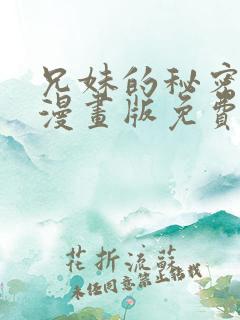 兄妹的秘密
漫畫版免費
花折流蘇
未经同意禁止转载